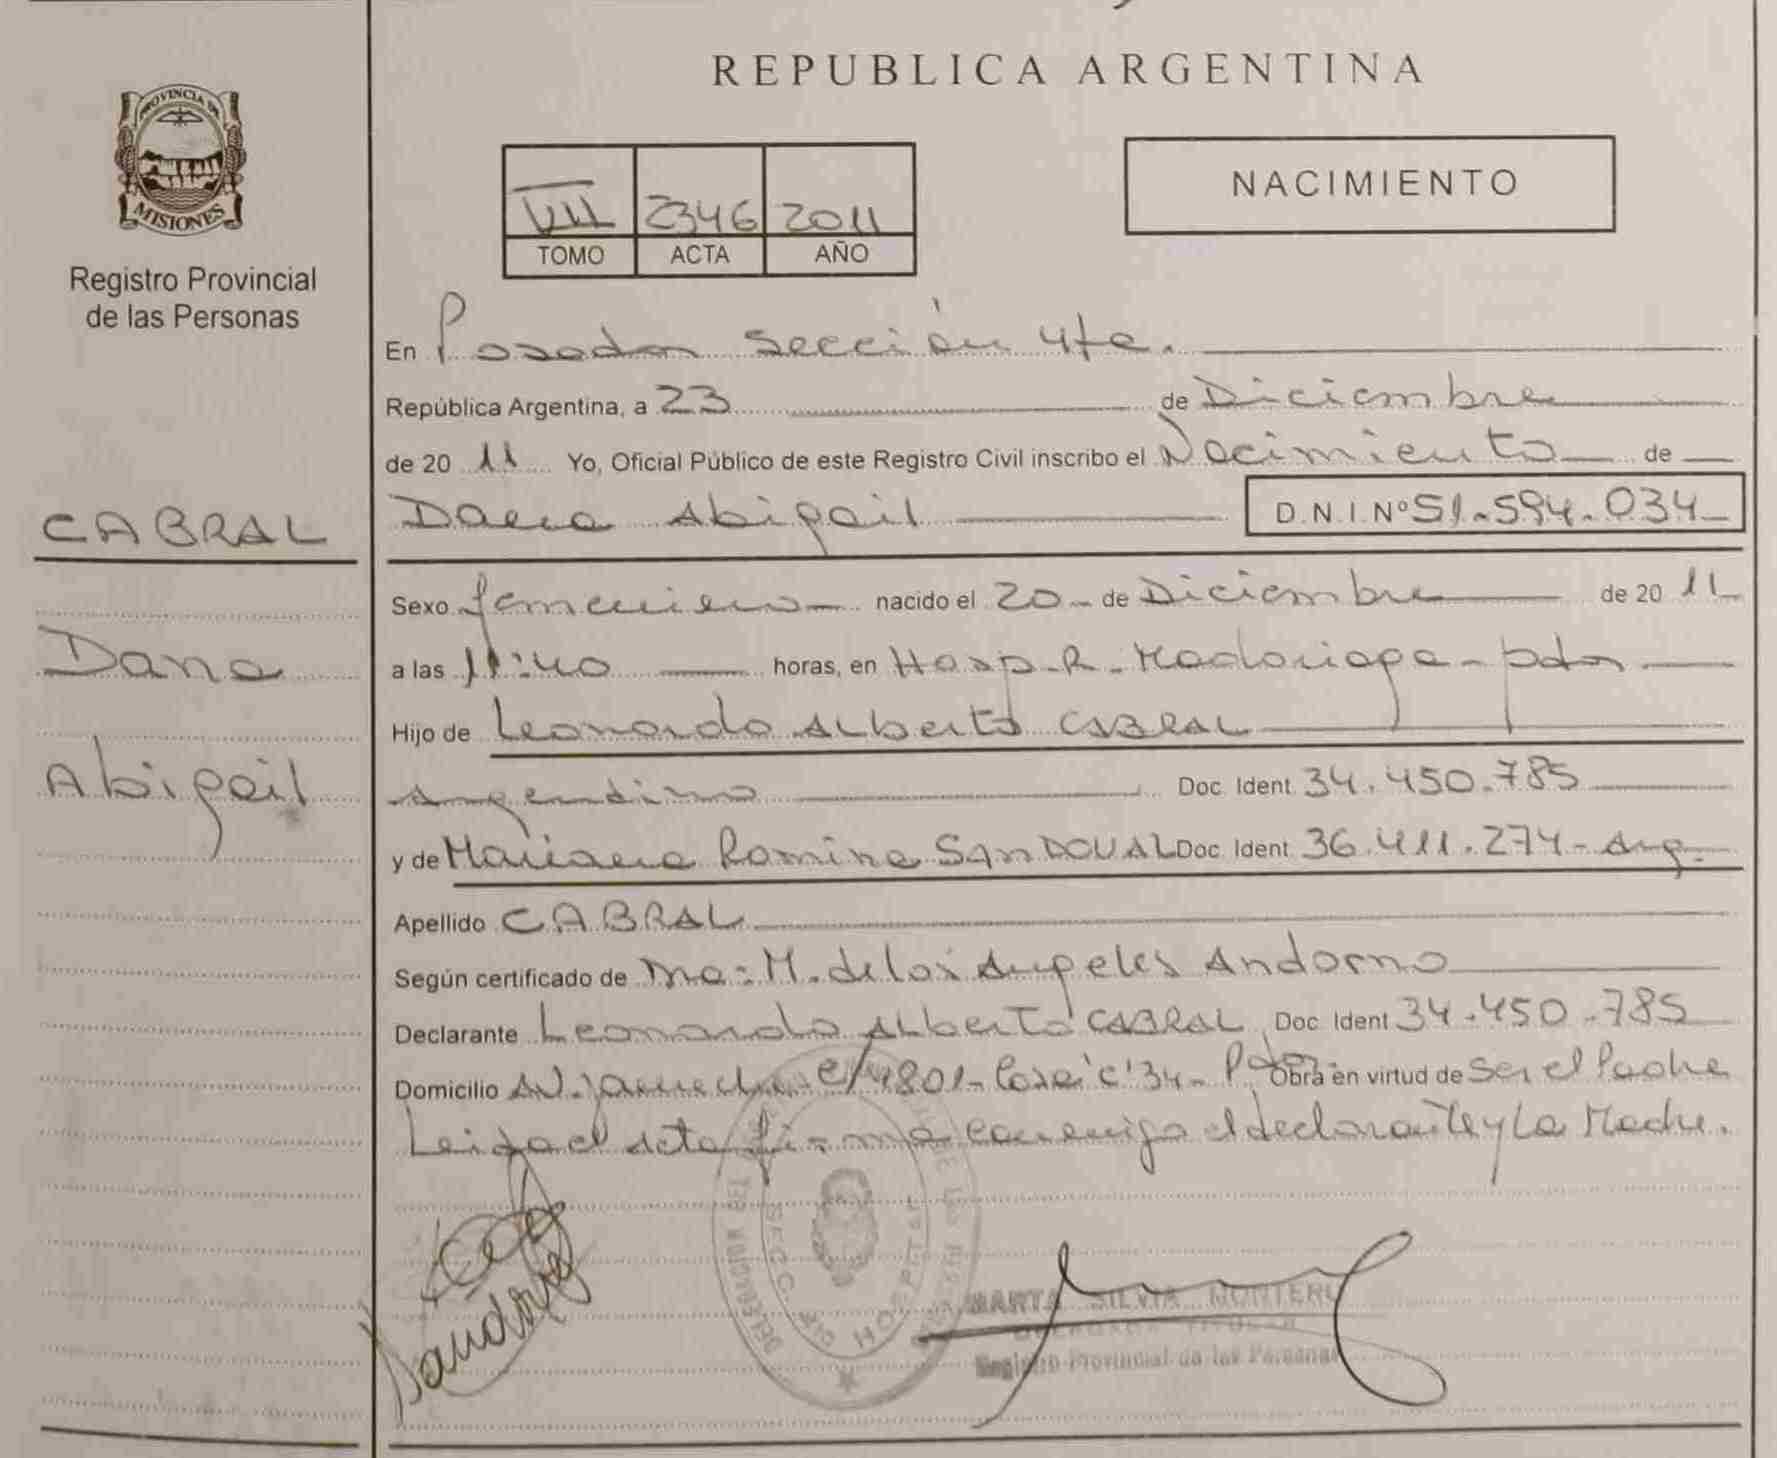 REPUBLICA ARGENTINA
PROVINCIA DE
MISIONES
Registro Provincial
de las Personas
VII 2346 2011
TOMO ACTA AÑO
NACIMIENTO
En Posadas Sección 4ta.
República Argentina, a 23 de Diciembre
de 20 11 Yo, Oficial Público de este Registro Civil inscribo el Nacimiento de
Dana Abigail D.N.I.Nº 51.594.034
CABRAL
Dana
Abigail
Sexo femenino nacido el 20 de Diciembre de 20 11
a las 11:40 horas, en Hosp. R. Madariaga - pdas
Hijo de Leonardo Alberto CABRAL
Argentino Doc. Ident. 34.450.785
y de Mariana Romina SANDOVAL Doc. Ident. 36.411.274 - Arg.
Apellido CABRAL
Según certificado de M. de los Angeles Andorno
Declarante Leonardo Alberto CABRAL Doc. Ident. 34.450.785
Domicilio Av. 4801 - Casa 'c' 34 - Obra en virtud de Ser el Padre
Leida el acta firma conmigo el declarante y La Madre.
Sandoval
SECC. 4ta HOSPITAL
MARTA SILVIA MONTERO
DELEGADA TITULAR
Registro Provincial de las Personas